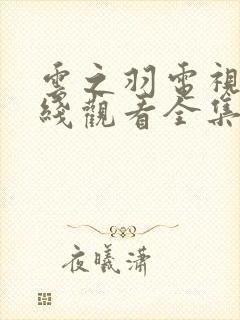 雲之羽電視
綫觀看全集
夜曦瀟